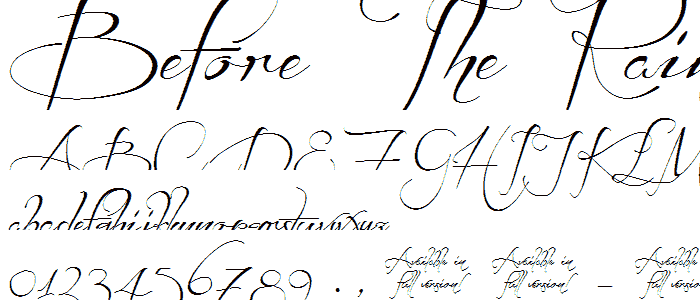 Before The Rain
ABCDEFGHIJKLM
abcdefghijklmnopqrstuvwxyz
0123456789 . , Available in full version Available in full version - Available in full version